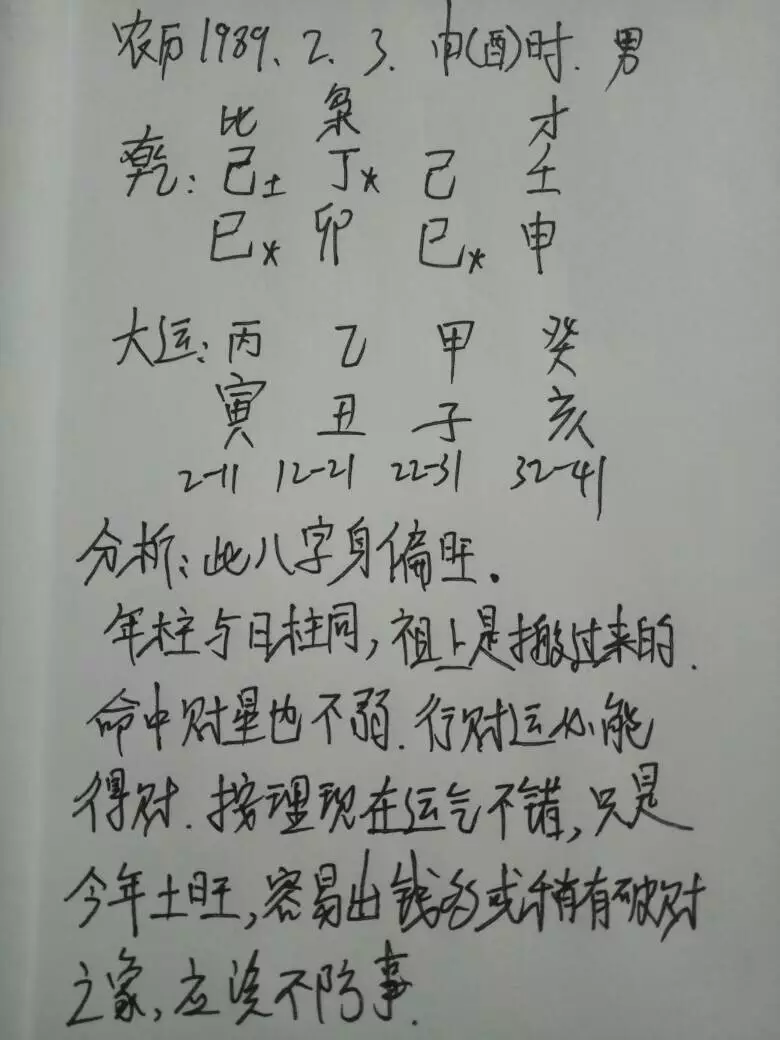 农历1989.2.3.申(酉)时.男
比 枭 才
乾:己土 丁火 己 壬
巳火 卯 巳火 申
大运:丙 乙 甲 癸
寅 丑 子 亥
2-11 12-21 22-31 32-41
分析:此八字身偏旺.
年柱与日柱同,祖上是搬过来的.
命中财星也不弱.行财运必能
得财.按理现在运气不错,只是
今年土旺,容易出钱多或稍有破财
之象,应该不防事.